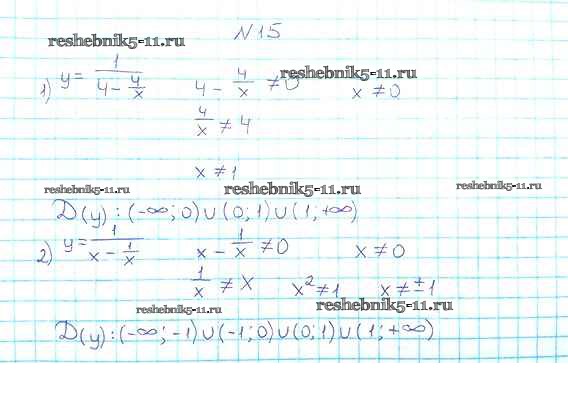 reshebnik5-11.ru
N15
reshebnik5-11.ru
1) y = 1/(4 - 4/x)   4 - 4/x ≠ 0   x ≠ 0
4/x ≠ 4
x ≠ 1
reshebnik5-11.ru reshebnik5-11.ru reshebnik5-11.ru
D(y): (-∞; 0) ∪ (0; 1) ∪ (1; +∞)
2) y = 1/(x - 1/x)   x - 1/x ≠ 0   x ≠ 0
1/x ≠ x   x² ≠ 1   x ≠ ±1
reshebnik5-11.ru reshebnik5-11.ru
D(y): (-∞; -1) ∪ (-1; 0) ∪ (0; 1) ∪ (1; +∞)